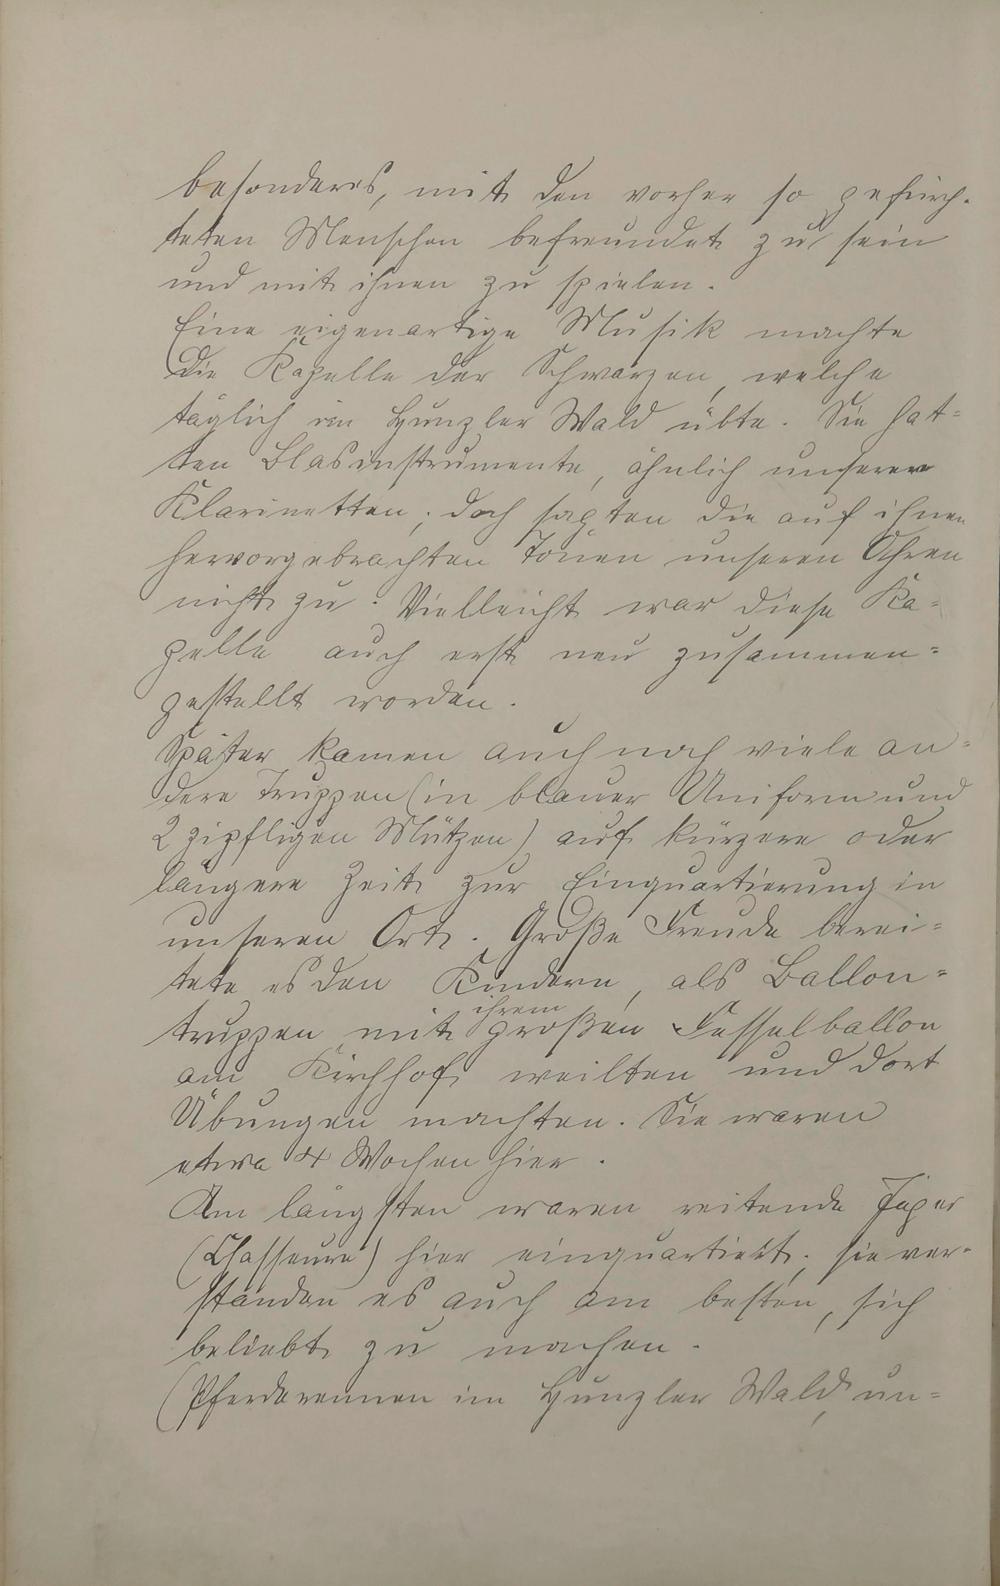 besonders, mit den vorher so gefürch-
teten Menschen befreundet zu sein
und mit ihnen zu spielen.
Eine eigenartige Musik machte
die Kapelle der Schwarzen, welche
täglich im Hunzler Wald übte. Sie hat=
ten Blasinstrumente, ähnlich unseren
Klarinetten; doch sagten die auf ihnen
hervorgebrachten Tönen unseren Ohren
nicht zu. Vielleicht war diese Ka=
pelle auch erst neu zusammen=
gestellt worden.
Später kamen auch noch viele an=
dere Truppen (in blauer Uniform und
2 zipfligen Mützen) auf kürzere oder
längere Zeit zur Einquartierung in
unseren Ort. Große Freude berei=
tete es den Kindern, als Ballon=
truppen mit ihrem großen Fesselballon
am Kirchhof weilten und dort
Übungen machten. Sie waren
etwa 4 Wochen hier.
Am längsten waren reitende Jäger
(Chasseure) hier einquartiert; sie ver-
standen es auch am besten, sich
beliebt zu machen.
(Pferderennen im Hunzler Wald, un=